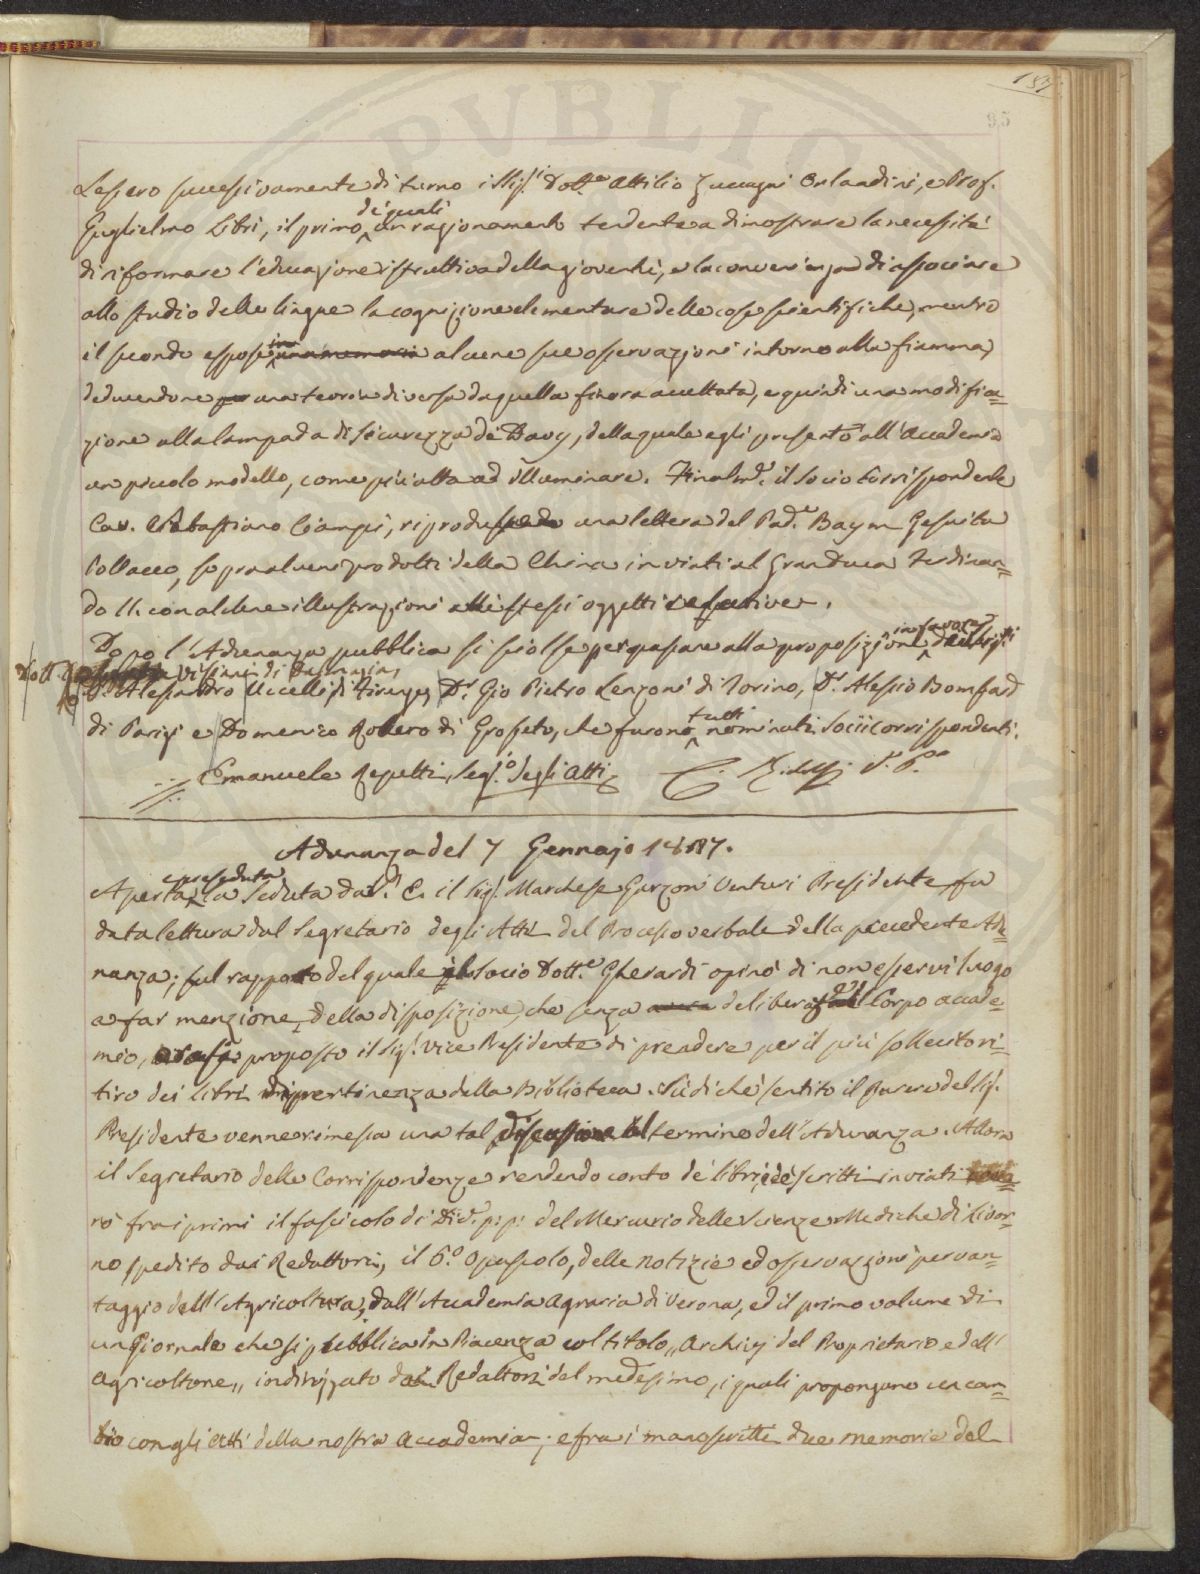 157
95
Lessero successivamente di turno i Sig.i Dott.e Attilio Zuccagni Orlandini, e Prof.
Guglielmo Libri, il primo de' quali un ragionamento tendente a dimostrare la necessità
di riformare l'educazione istruttiva della gioventù, e la convenienza di associare
allo studio delle lingue la cognizione elementare delle cose scientifiche, mentre
il secondo espose una memoria alcune sue osservazioni intorno alla fiamma,
deducendone una teoria diversa da quella finora accettata, e quindi una modifica=
zione alla lampada di sicurezza de Davy, della quale egli presentò all'Accademia
un piccolo modello, come più atta ad illuminare. Finalm.e il socio Corrispondente
Cav. Sebastiano Ciampi, riprodusse una lettera del Pad.e Baym Gesuita
Pollacco, sopra alcuni prodotti della China inviati al Granduca Ferdinan=
do II. con alcune illustrazioni alli stessi oggetti relative.
Dopo l'Adunanza pubblica si sciolse per passare alla proposizione in favore dei Sig.i
Dott. Visiani di Dalmazia,
Alessandro Uccelli di Firenze, D.r Gio Pietro Lenzoni di Torino, D.r Alessio Bomfard
di Parigi e Domenico Rovero di Grosseto, che furono tutti nominati Socii corrispondenti.
Emanuele Repetti, Seg.o degli Atti C. Ridolfi V. P.e
Adunanza del 7 Gennajo 1827.
Aperta e preseduta la Seduta da S. E. il Sig. Marchese Garzoni Venturi Presidente fu
data lettura dal Segretario degli Atti del Processo verbale della precedente Adu=
nanza; sul rapporto del quale il socio Dott.e Gherardi opinò di non esservi luogo
a far menzione, della disposizione, che senza deliberaz.e del Corpo accade=
mico, proposto il Sig. Vice Presidente di prendere per il più sollecito ri=
tiro dei libri di pertinenza della Biblioteca. Su di che sentito il Parere del Sig.
Presidente venne rimessa una tal discussione al termine dell'Adunanza. Allora
il Segretario delle Corrispondenze rendendo conto de' libri, e de' scritti inviati
rò fra i primi il fascicolo di Dic.e p: p: del Mercurio delle Scienze Mediche di Livor=
no spedito dai Redattori, il 6.o Opuscolo, delle Notizie ed osservazioni per van=
taggio dell'Agricoltura, dall'Accademia Agraria di Verona, ed il primo volume di
un Giornale che si pubblica in Piacenza col titolo „ Archivj del Proprietario e dell'
Agricoltore „ indirizzato dai Redattori del medesimo, i quali propongono un cam=
bio con gli Atti della nostra Accademia; e fra i manoscritti due memorie del